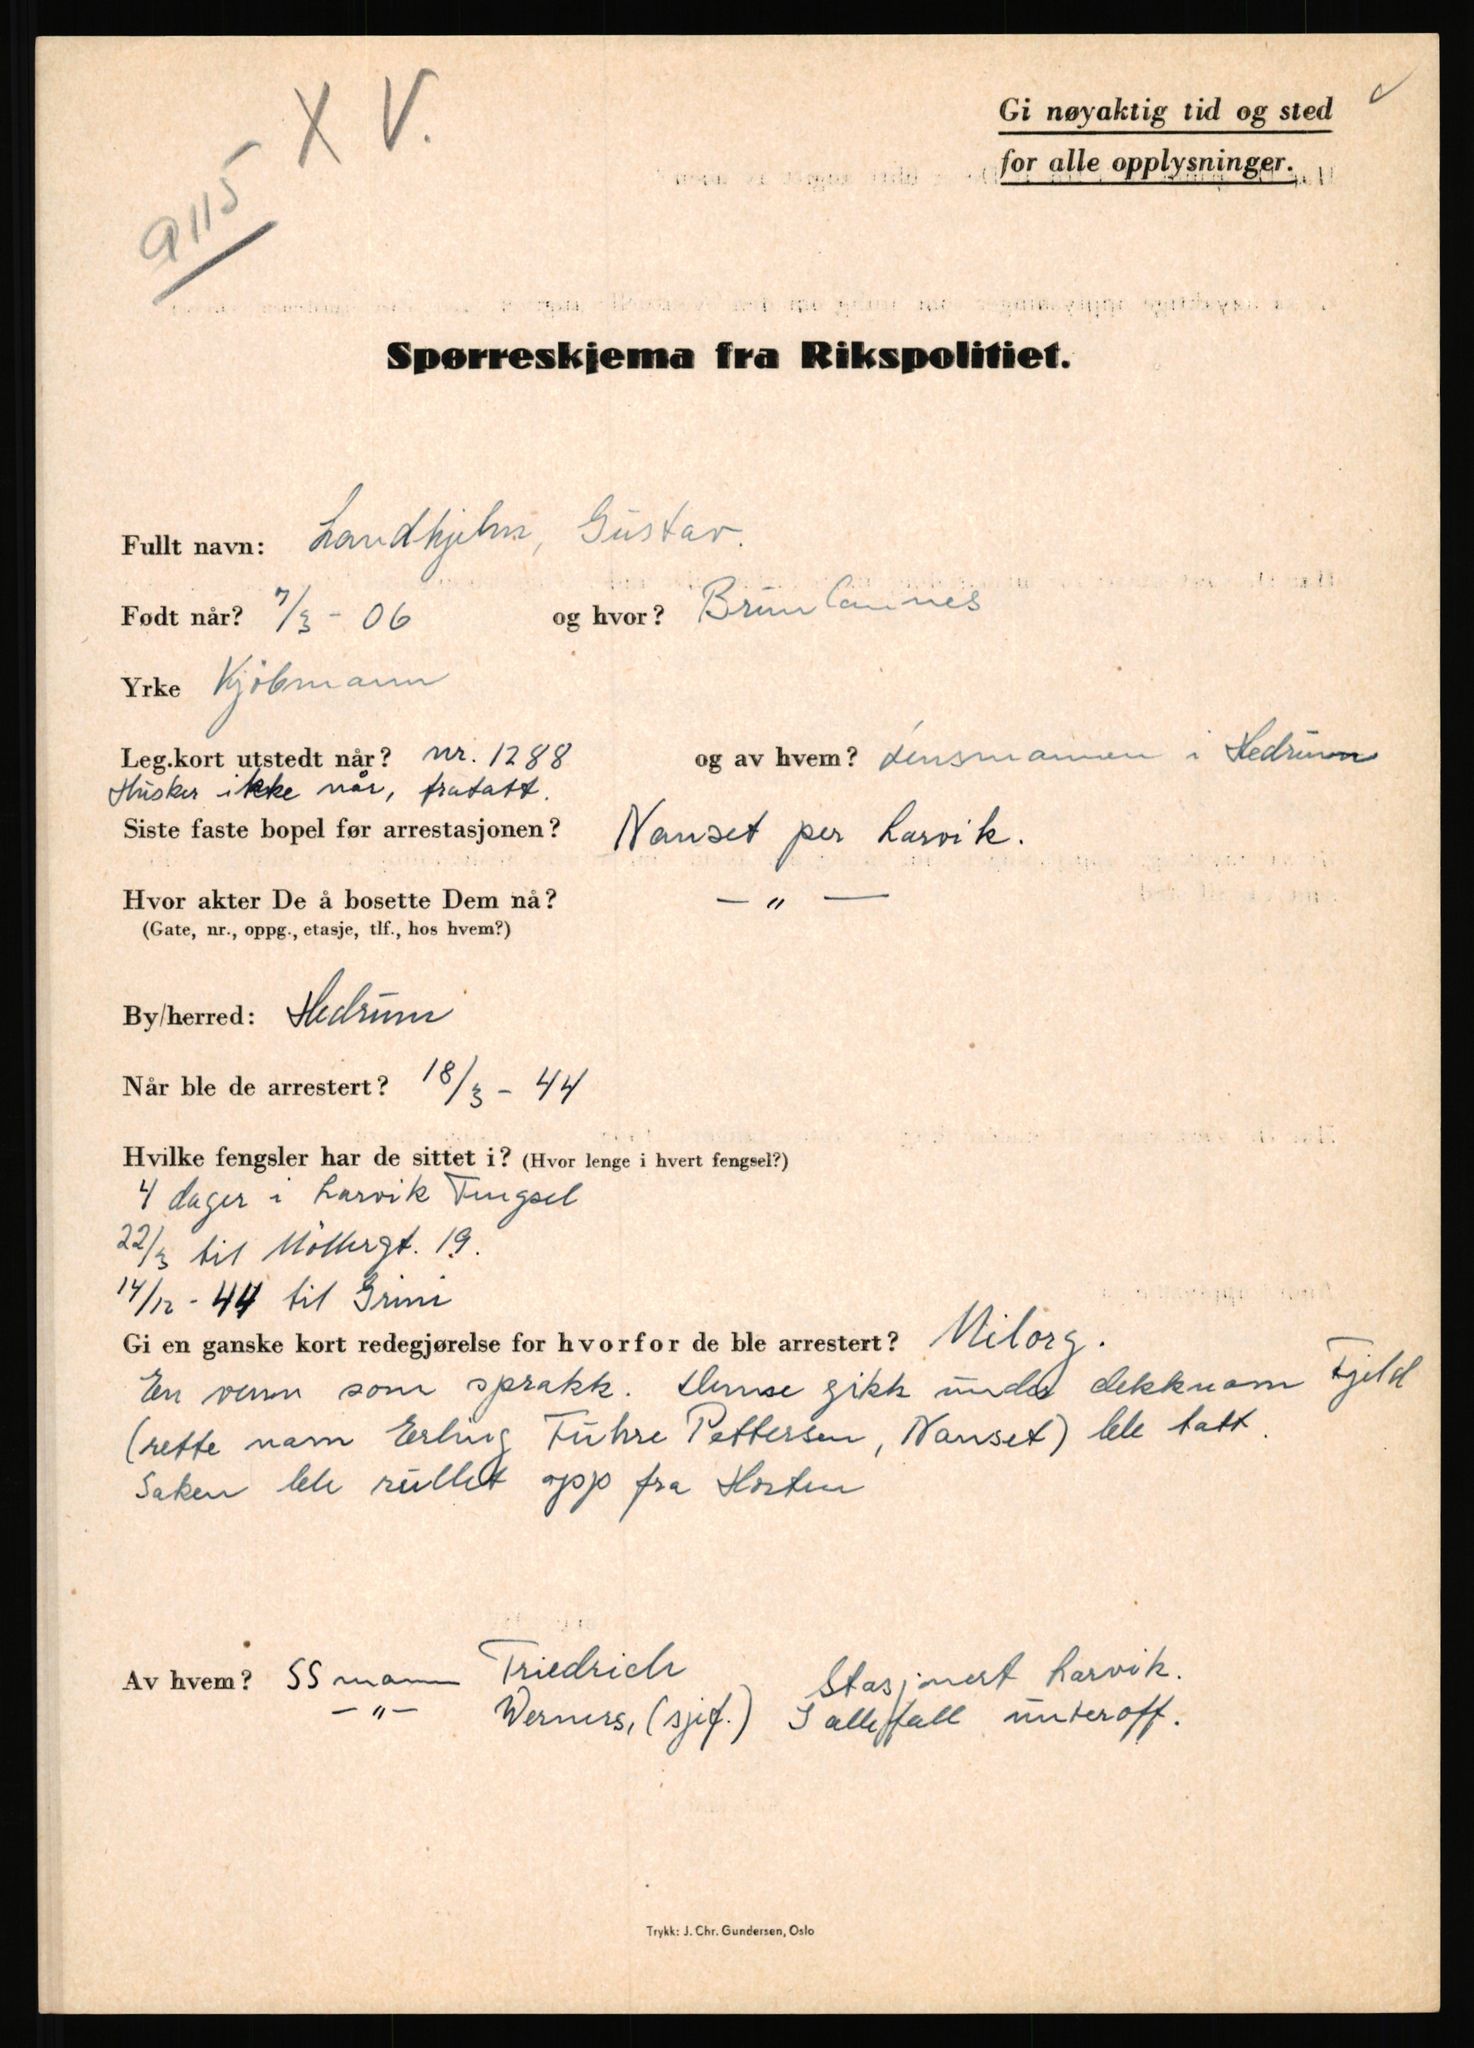 9115 X V.
Gi nøyaktig tid og sted
for alle opplysninger.
Spørreskjema fra Rikspolitiet.
Fullt navn: Landhjelm, Gustav.
Født når? 7/3 - 06 og hvor? Brunlannes
Yrke Kjöbmann
Leg.kort utstedt når? nr. 1288 og av hvem? Lensmannen i Hedrum
Husker ikke når, fratatt.
Siste faste bopel før arrestasjonen? Nanset per Larvik.
Hvor akter De å bosette Dem nå? — „ —
(Gate, nr., oppg., etasje, tlf., hos hvem?)
By/herred: Hedrum
Når ble de arrestert? 18/3 - 44
Hvilke fengsler har de sittet i? (Hvor lenge i hvert fengsel?)
4 dager i Larvik Fengsel
22/3 til Möllergt. 19.
14/12 - 44 til Grini
Gi en ganske kort redegjørelse for hvorfor de ble arrestert? Milorg.
En venn som sprakk. Denne gikk under dekknavn Fjeld
(rette navn Erling Fuhre Pettersen, Nanset) ble tatt.
Saken ble rullet opp fra Horten
Av hvem? SS mann Friedrich Stasjonert Larvik.
— „ — Werners, (sjef.) I allefall underoff.
Trykk: J. Chr. Gundersen, Oslo